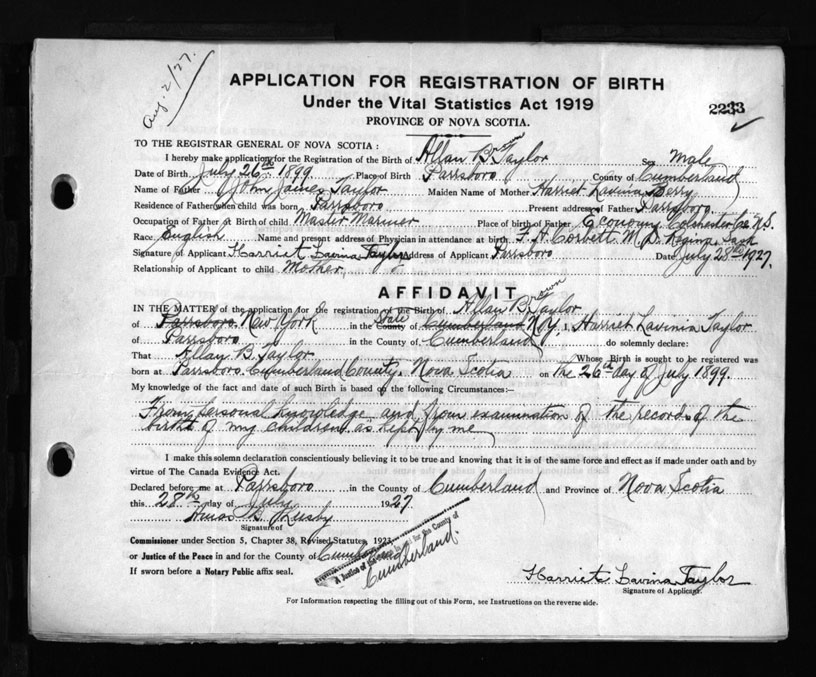 Aug. 2/27.
APPLICATION FOR REGISTRATION OF BIRTH
Under the Vital Statistics Act 1919
PROVINCE OF NOVA SCOTIA.
2233
TO THE REGISTRAR GENERAL OF NOVA SCOTIA :
I hereby make application for the Registration of the Birth of Allan Brown Taylor Sex Male
Date of Birth July 26th 1899 Place of Birth Parrsboro County of Cumberland
Name of Father John James Taylor Maiden Name of Mother Harriet Lavinia Berry
Residence of Father when child was born Parrsboro Present address of Father Parrsboro
Occupation of Father at Birth of child Master Mariner Place of birth of Father Economy Colchester Co. N.S.
Race English Name and present address of Physician in attendance at birth F. A. Corbett M. D. Regina Sask
Signature of Applicant Harriet Lavinia Taylor Address of Applicant Parrsboro Date July 28th 1927.
Relationship of Applicant to child Mother
AFFIDAVIT
IN THE MATTER of the application for the registration of the Birth of Allan Brown Taylor
of Parrsboro New York in the County State of Cumberland N.Y. I, Harriet Lavinia Taylor
of Parrsboro in the County of Cumberland do solemnly declare:
That Allan B. Taylor Whose Birth is sought to be registered was
born at Parrsboro Cumberland County, Nova Scotia on the 26th day of July 1899.
My knowledge of the fact and date of such Birth is based on the following Circumstances:—
From personal knowledge and from examination of the records of the
birth of my children as kept by me
I make this solemn declaration conscientiously believing it to be true and knowing that it is of the same force and effect as if made under oath and by
virtue of The Canada Evidence Act.
Declared before me at Parrsboro in the County of Cumberland and Province of Nova Scotia
this 28th day of July 1927.
Amos B. Lusby
Signature of
Commissioner under Section 5, Chapter 38, Revised Statutes 1923
or Justice of the Peace in and for the County of Cumberland
If sworn before a Notary Public affix seal.
A Justice of the Peace in and for the County of
Cumberland.
Harriet Lavinia Taylor
Signature of Applicant.
For Information respecting the filling out of this Form, see Instructions on the reverse side.